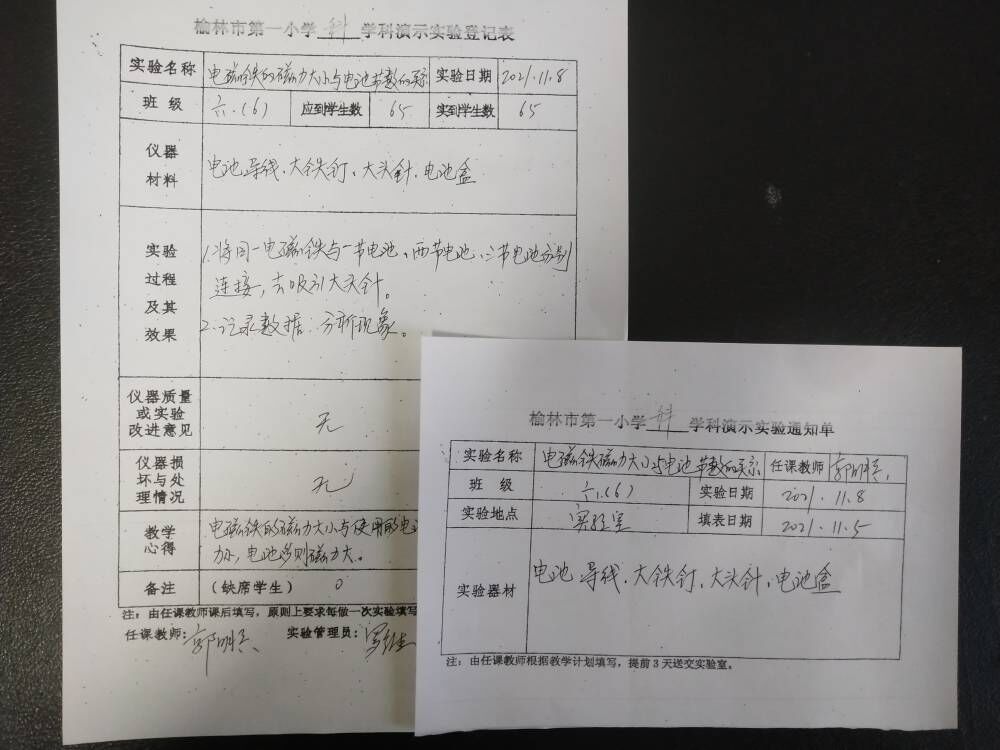 榆林市第一小学 科 学科演示实验登记表
实验名称 电磁铁的磁力大小与电池节数的关系 实验日期 2021.11.8
班级 六.(6) 应到学生数 65 实到学生数 65
仪器
材料
电池、导线、大铁钉、大头针、电池盒
实验
过程
及其
效果
1.将同一电磁铁与一节电池、两节电池、三节电池分别
连接,去吸引大头针。
2.记录数据,分析现象。
仪器质量
或实验
改进意见
无
仪器损
坏与处
理情况
无
教学
心得
电磁铁的磁力大小与使用的电
电池多则磁力大。
备注 (缺席学生) 0
注:由任课教师课后填写,原则上要求每做一次实验填写
任课教师: 郭明 实验管理员:
榆林市第一小学 科 学科演示实验通知单
实验名称 电磁铁磁力大小与电池节数的关系 任课教师 郭明
班级 六.(6) 实验日期 2021.11.8
实验地点 实验室 填表日期 2021.11.5
实验器材 电池、导线、大铁钉、大头针、电池盒
注:由任课教师根据教学计划填写,提前3天送交实验室。